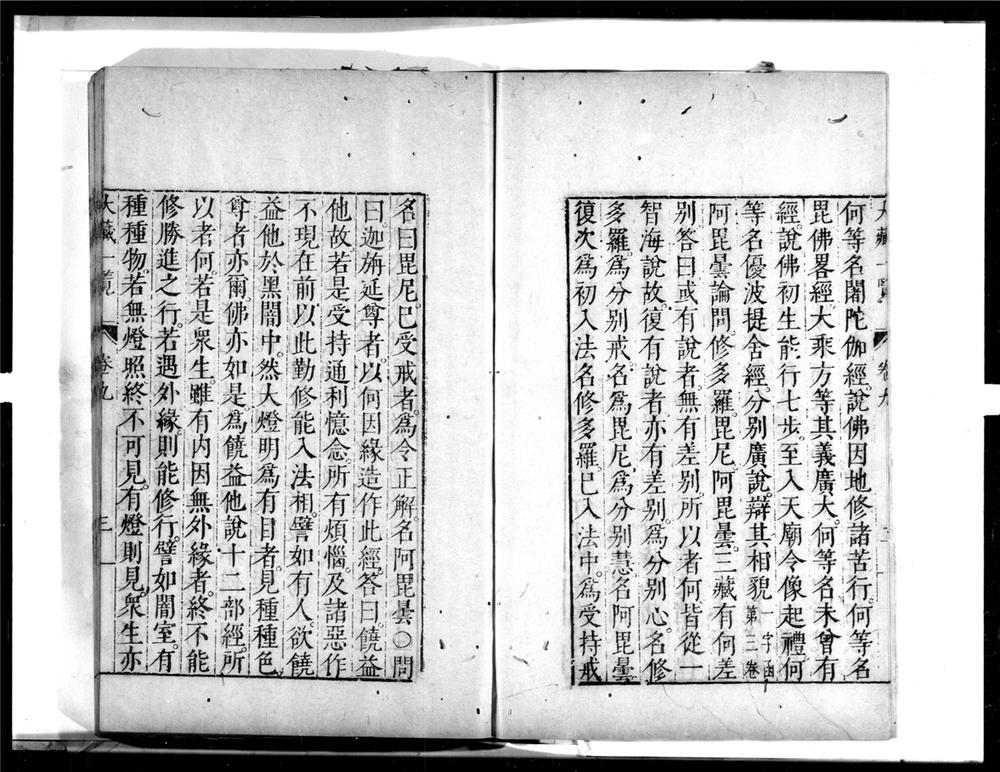 何等名闍陀伽經。說佛因地修諸苦行。何等名
毘佛畧經。大乘方等其義廣大。何等名未曾有
經。說佛初生能行七步。至入天廟令像起禮。何
等名優波提舍經。分別廣說。辯其相貌。字函第三卷
阿毘曇論問。修多羅。毘尼。阿毘曇。三藏有何差
別。答曰。或有說者。無有差別。所以者何。皆從一
智海說故。復有說者。亦有差別。為分別心。名修
多羅。為分別戒。名為毘尼。為分別慧。名阿毘曇。
復次為初入法名修多羅。已入法中。為受持戒
大藏一覽 卷九
名曰毘尼。已受戒者。為令正解名阿毘曇○問
曰。迦旃延尊者。以何因緣造作此經。答曰。饒益
他故。若是受持通利憶念。所有煩惱。及諸惡作
不現在前。以此勤修能入法相。譬如有人。欲饒
益他。於黑闇中。然大燈明。為有目者。見種種色。
尊者亦爾。佛亦如是。為饒益他說十二部經。所
以者何。若是眾生。雖有內因。無外緣者。終不能
修勝進之行。若遇外緣則能修行。譬如闇室。有
種種物。若無燈照。終不可見。有燈則見。眾生亦
大藏一覽 卷九 三